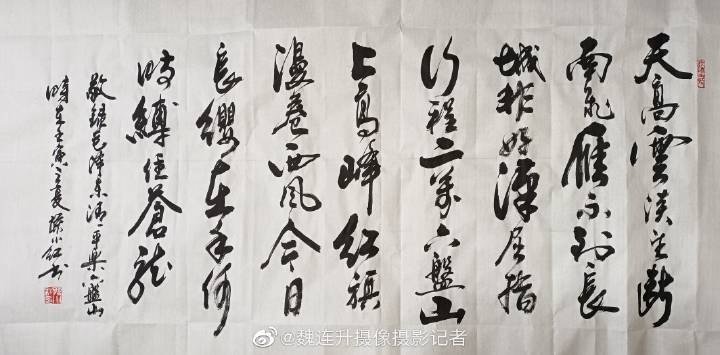 天高雲淡望断
南飛雁不到長
城非好漢屈指
行程二萬六盤山
上高峰紅旗
漫卷西風今日
長纓在手何
時縛住蒼龍
敬録毛澤東清平樂六盤山
時在壬寅之夏 小紅书
@魏连升摄像摄影记者